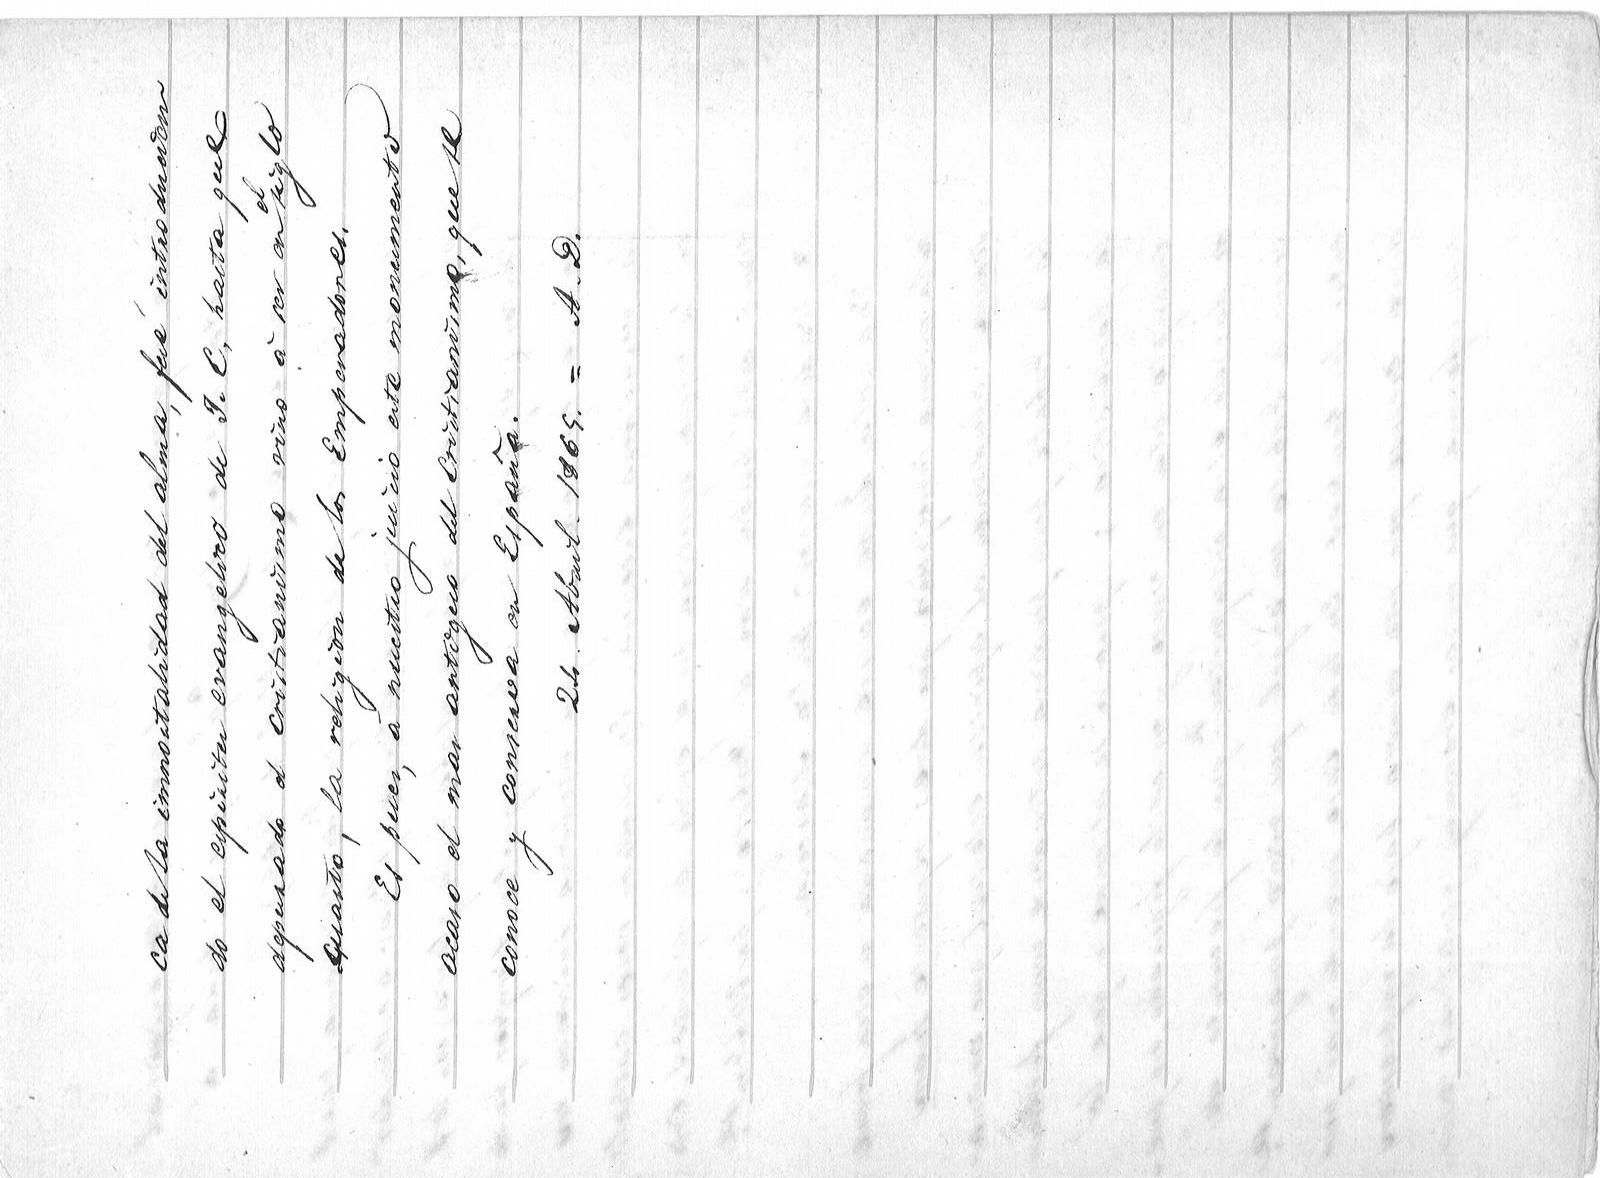 ca de la inmortalidad del alma, fué introducien
do el espíritu evangelico de J. C, hasta que
depurado el cristianismo vino á ser en el siglo
cuarto, la religion de los Emperadores.
Es pues, á nuestro juicio este monumento
acaso el mas antiguo del Cristianismo, que se
conoce y conserva en España.
24. Abril. 1865. = A. D.